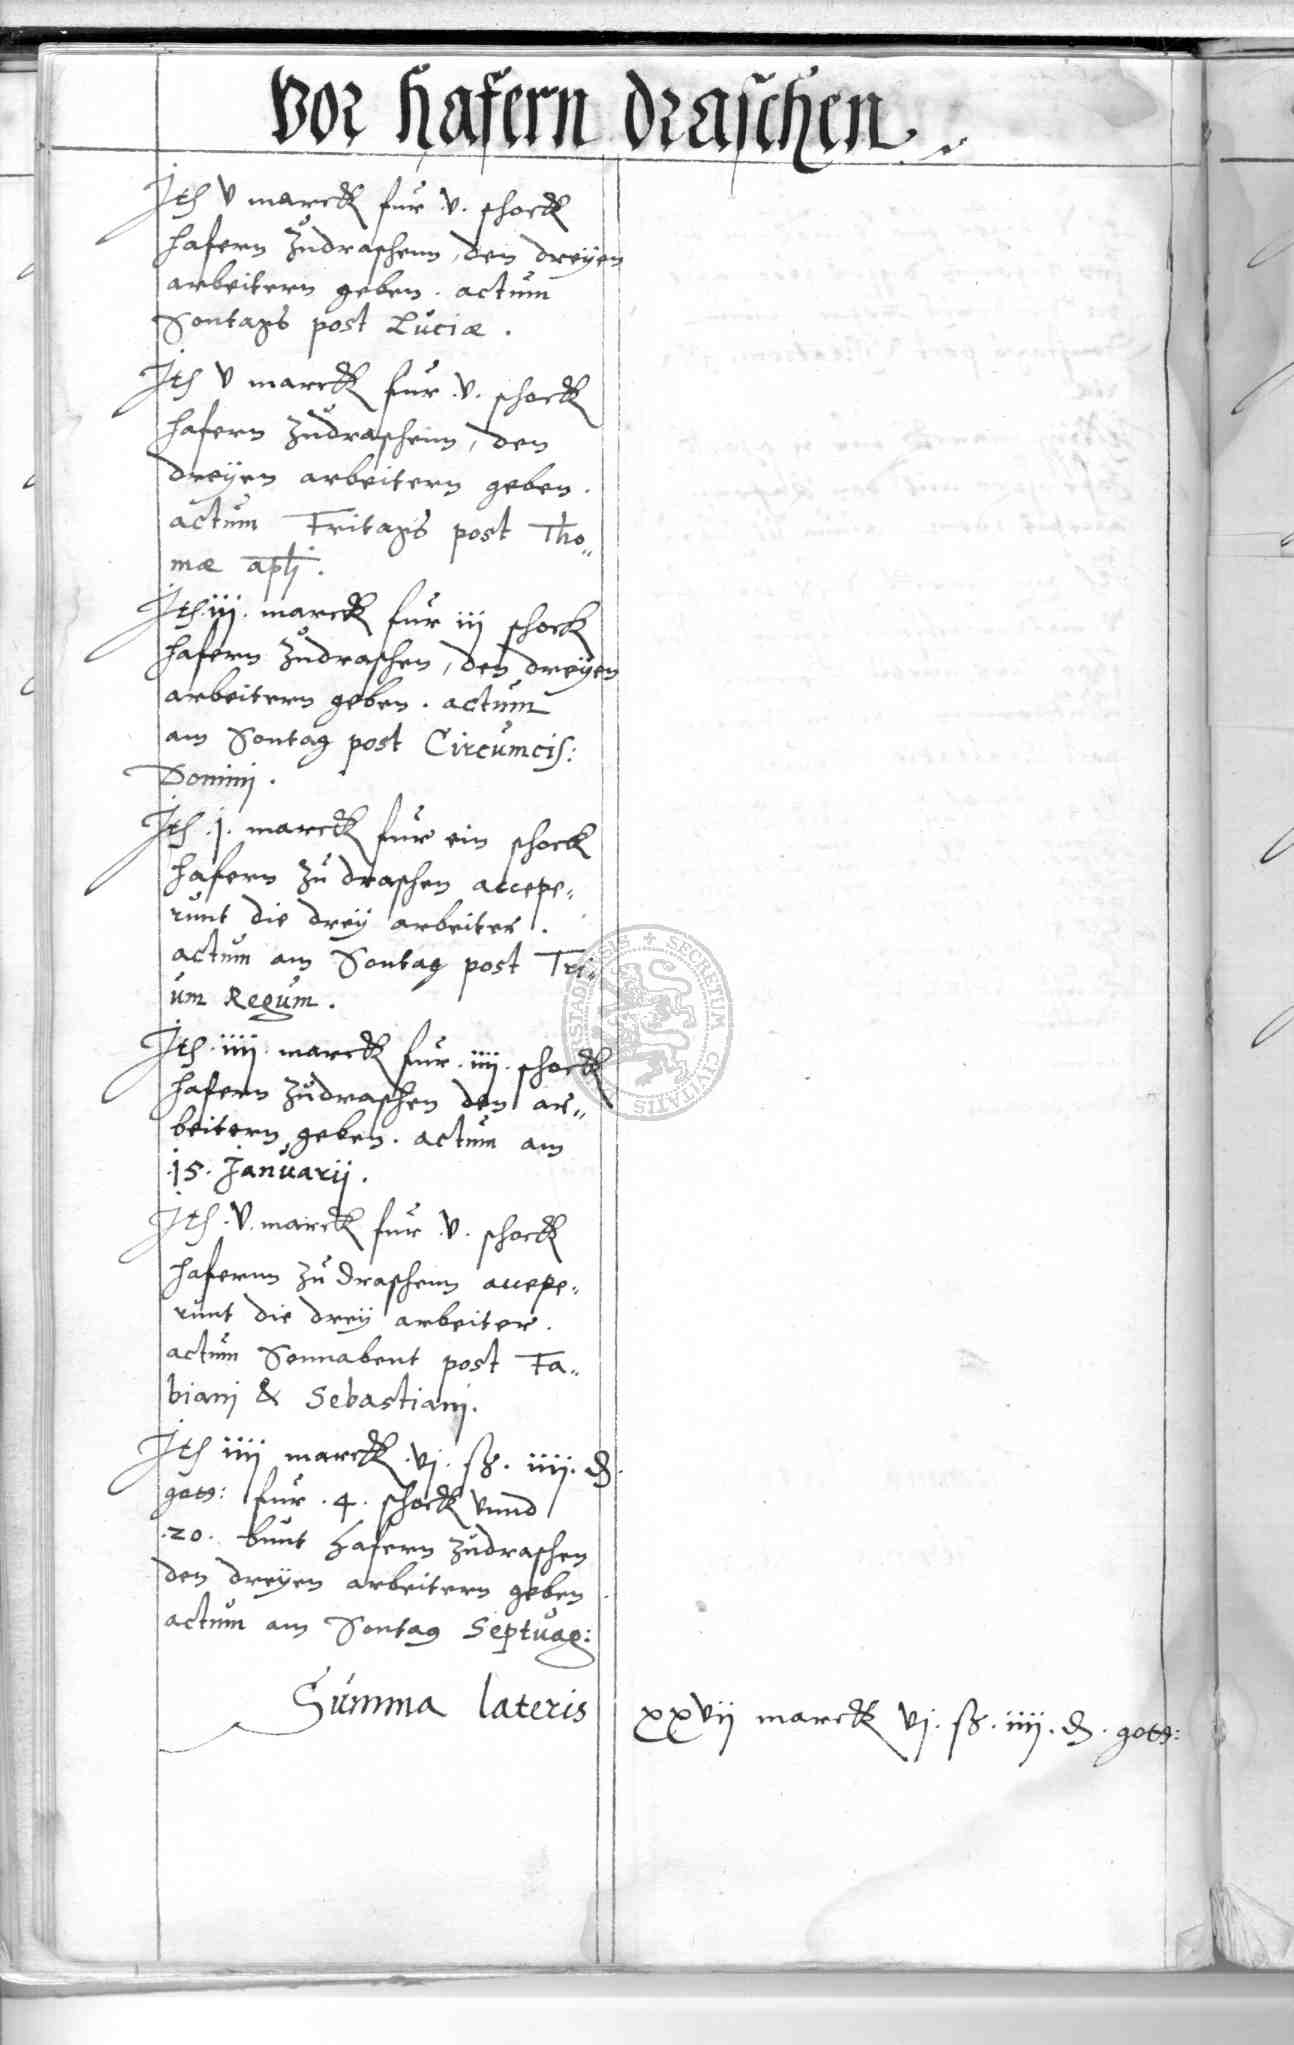 Vor hafern draschen.
Itē v marck fur .v. schock
hafern zudraschenn, den dreyen
arbeitern geben. actum
Sontags post Luciæ.
Itē v marck fur .v. schock
hafern zudraschenn, den
dreyen arbeitern geben.
actum Fritags post Tho„
mæ apłi.
Itē .iij. marck fur iij schock
hafern zudraschen, den dreyen
arbeitern geben. actum
am Sontag post Circumcis:
Dominj.
Itē .j. marck fur ein schock
hafern zu draschen accepe„
runt die drey arbeiter.
actum am Sontag post Tri„
um Regum.
Itē .iiij. marck fur .iiij. schock
hafern zudraschen den ar„
beitern geben. actum am
.15. Januarij.
Itē .v. marck fur .v. schock
hafernn zu draschenn accepe„
runt die drey arbeiter.
actum Sonnabent post Fa„
bianj & Sebastianj.
Itē iiij marck .vj. ßg. iiij. ₰.
gotts: fur .4. schock vnnd
.20. bunt hafern zudraschen
den dreyen arbeitern geben.
actum am Sontag Septuag:
Summa lateris xxvij marck vj. ßg. iiij. ₰. gotts:
SECRETUM CIVITATIS